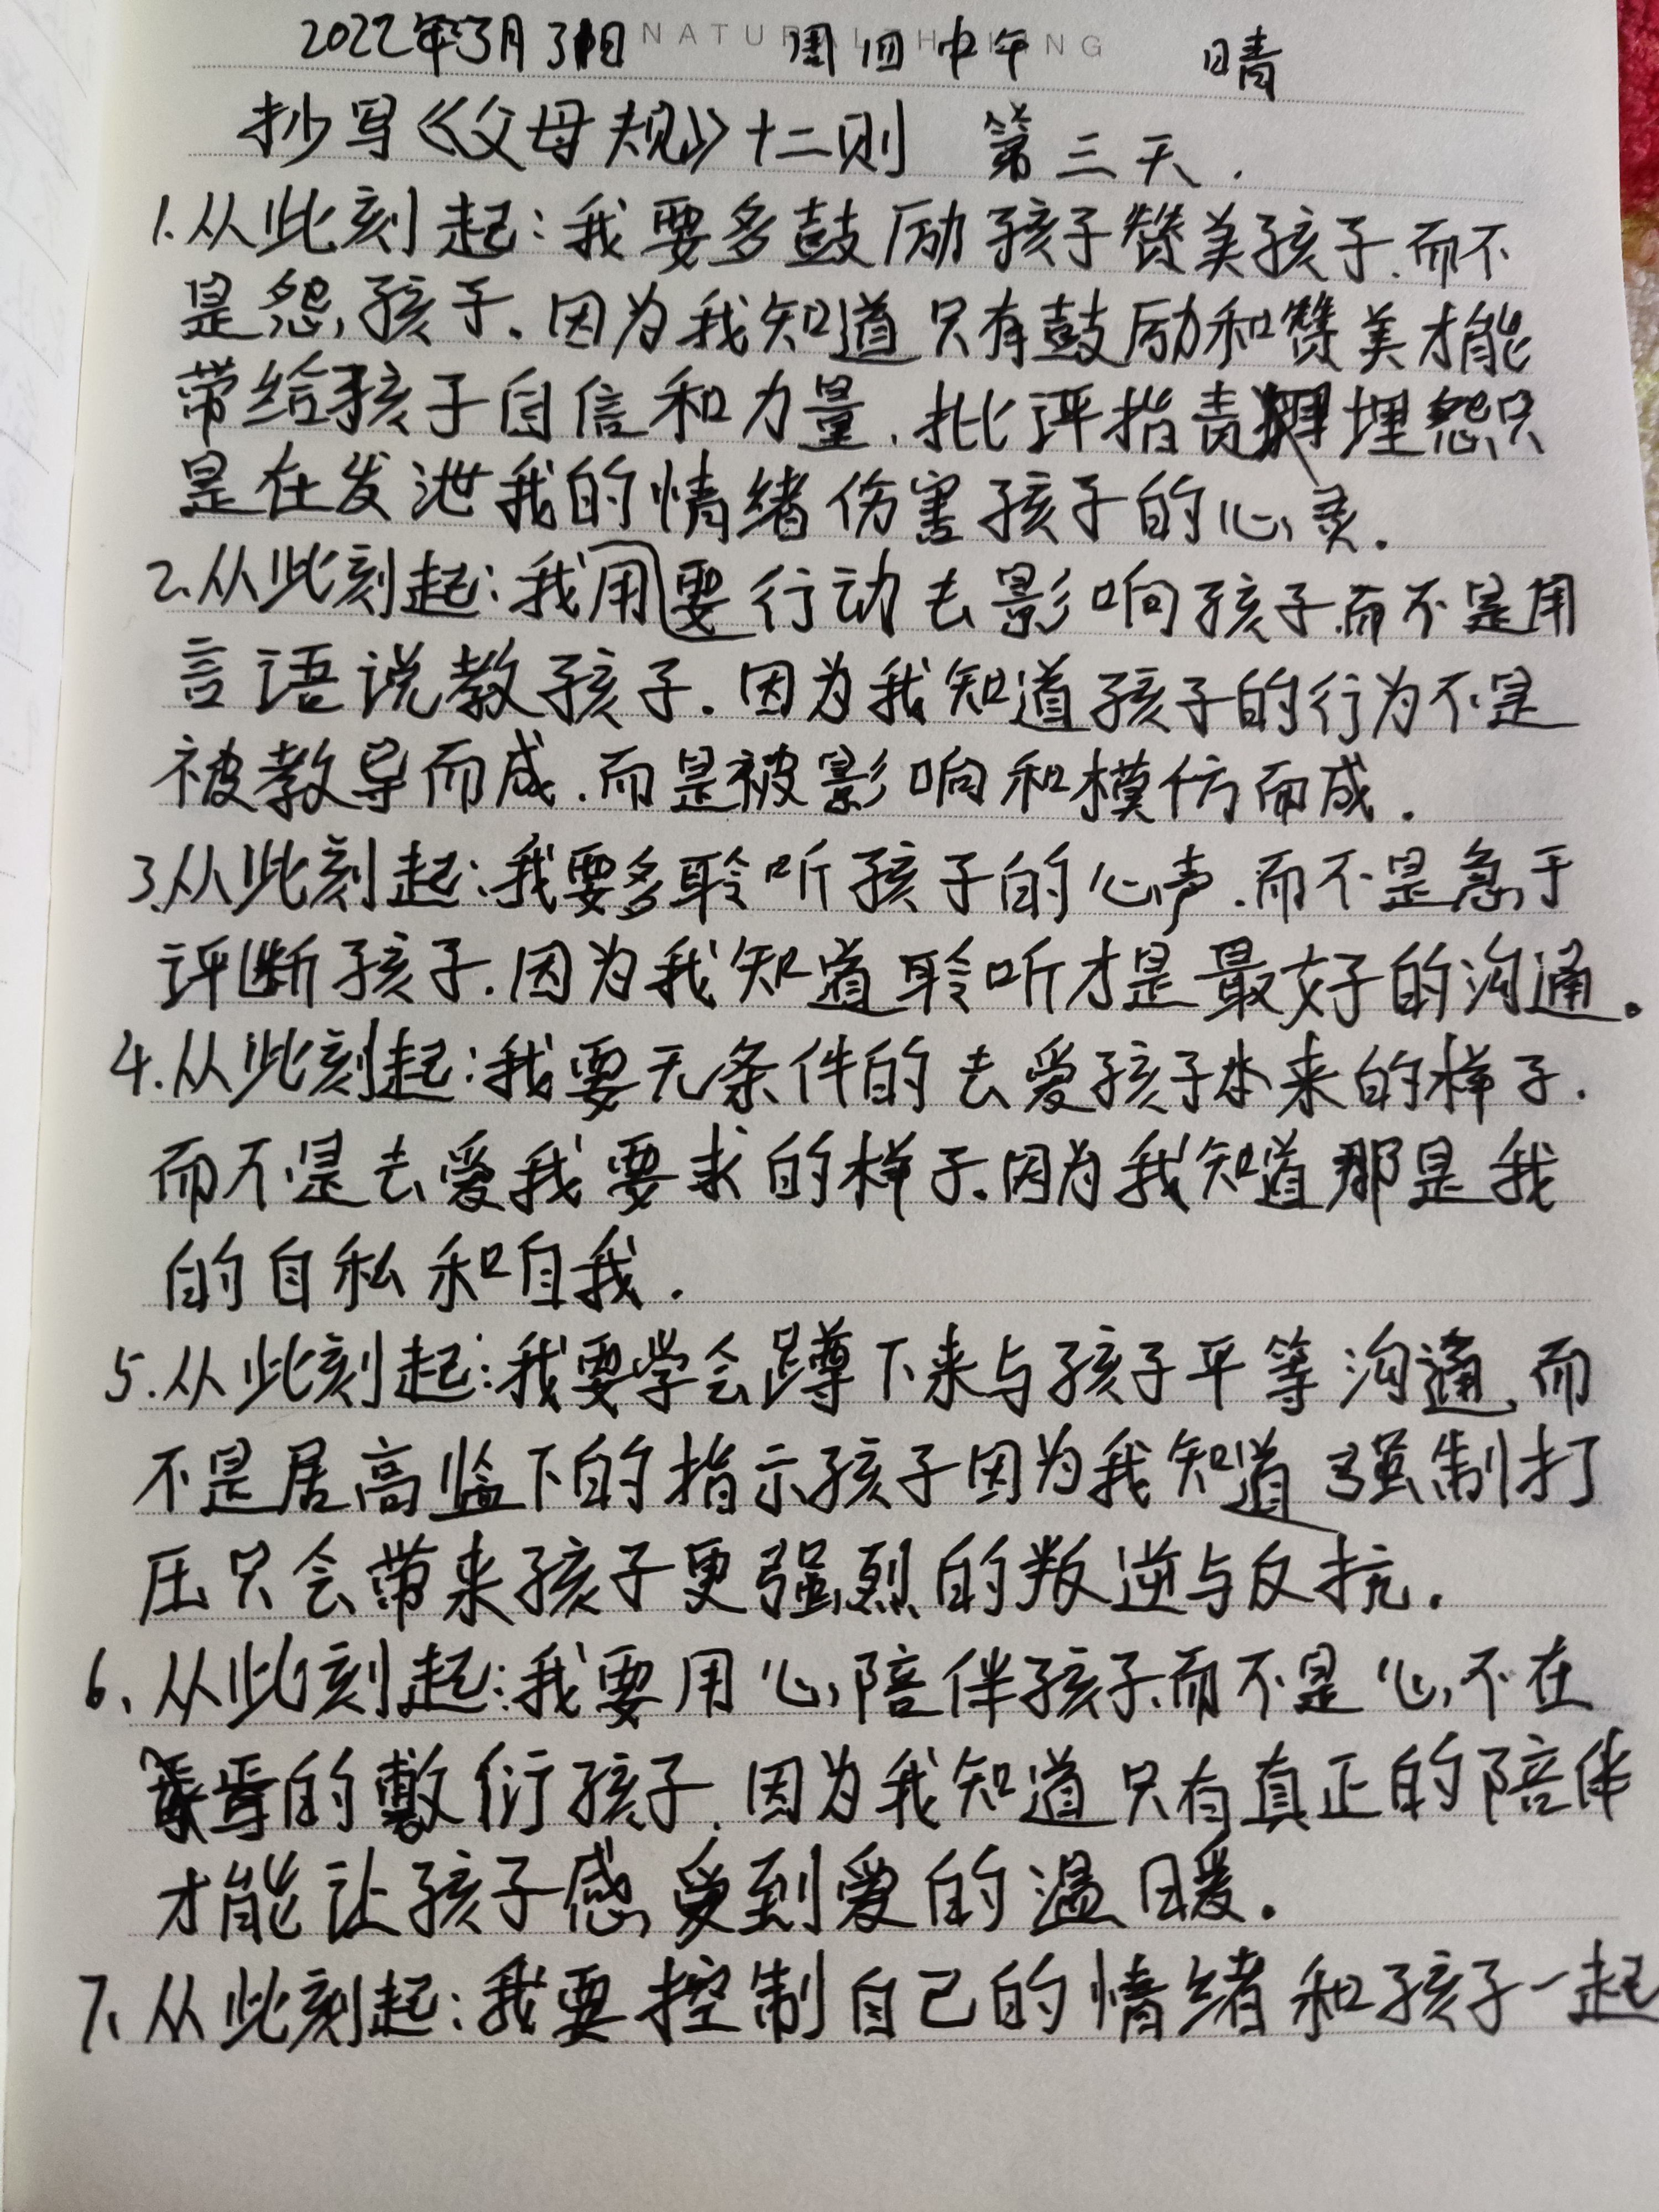 2022年3月31日 周四中午 晴
抄写《父母规》十二则 第三天.
1.从此刻起:我要多鼓励孩子赞美孩子.而不
是怨孩子.因为我知道只有鼓励和赞美才能
带给孩子自信和力量.批评指责埋怨只
是在发泄我的情绪伤害孩子的心灵.
2.从此刻起:我用要行动去影响孩子.而不是用
言语说教孩子.因为我知道孩子的行为不是
被教导而成.而是被影响和模仿而成.
3.从此刻起:我要多聆听孩子的心声.而不是急于
评断孩子.因为我知道聆听才是最好的沟通。
4.从此刻起:我要无条件的去爱孩子本来的样子.
而不是去爱我要求的样子.因为我知道那是我
的自私和自我.
5.从此刻起:我要学会蹲下来与孩子平等沟通,而
不是居高临下的指示孩子因为我知道强制打
压只会带来孩子更强烈的叛逆与反抗.
6、从此刻起:我要用心陪伴孩子.而不是心不在
焉的敷衍孩子.因为我知道只有真正的陪伴
才能让孩子感受到爱的温暖.
7、从此刻起:我要控制自己的情绪和孩子一起